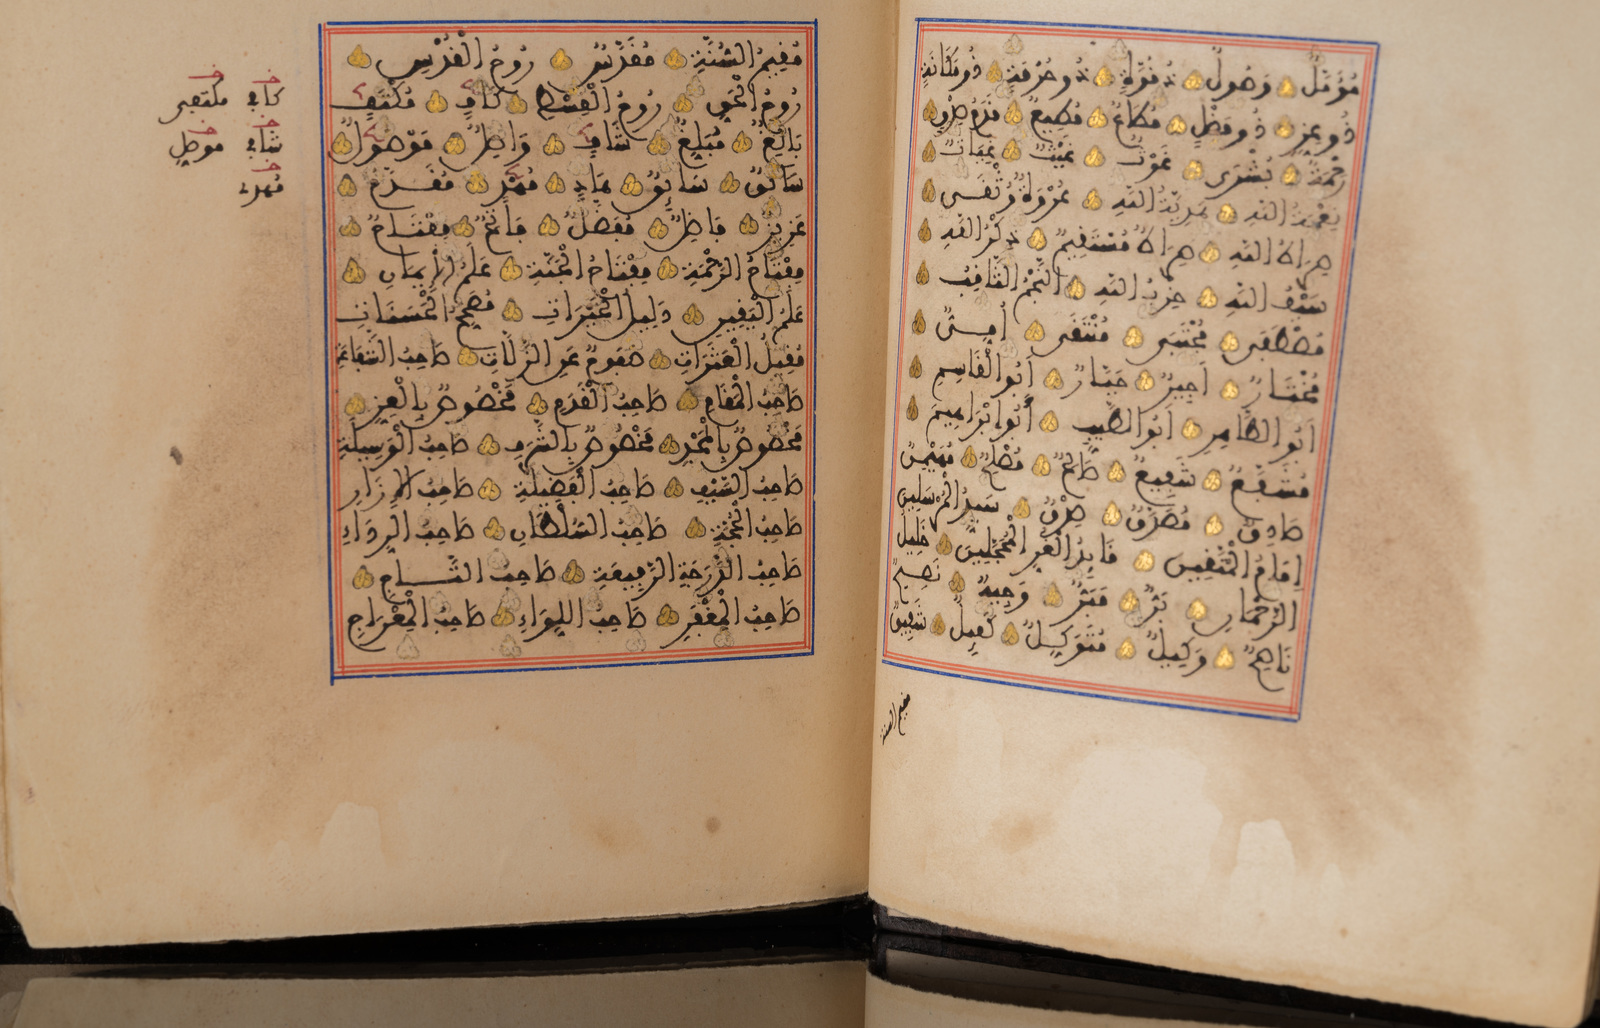 مُؤَمَّلٌ وَصُولٌ ذُو قُوَّةٍ ذُو حُرْمَةٍ ذُو مَكَانَةٍ
ذُو عِزٍّ ذُو فَضْلٍ مُطَاعٌ مُطِيعٌ قَدَمُ صِدْقٍ
رَحْمَةٌ بُشْرَى غَوْثٌ غَيْثٌ غِيَاثٌ
نِعْمَةُ اللَّهِ هَدِيَّةُ اللَّهِ عُرْوَةٌ وُثْقَى
صِرَاطُ اللَّهِ صِرَاطٌ مُسْتَقِيمٌ ذِكْرُ اللَّهِ
سَيْفُ اللَّهِ حِزْبُ اللَّهِ النَّجْمُ الثَّاقِبُ
مُصْطَفَى مُجْتَبَى مُنْتَقَى أُمِّيٌّ
مُخْتَارٌ أَجِيرٌ جَبَّارٌ أَبُو الْقَاسِمِ
أَبُو الطَّاهِرِ أَبُو الطَّيِّبِ أَبُو إِبْرَاهِيمَ
مُشَفَّعٌ شَفِيعٌ صَالِحٌ مُصْلِحٌ مُهَيْمِنٌ
صَادِقٌ مُصَدَّقٌ صِدْقٌ سَيِّدُ الْمُرْسَلِينَ
إِمَامُ الْمُتَّقِينَ قَايِدُ الْغُرِّ الْمُحَجَّلِينَ خَلِيلُ
الرَّحْمَانِ بَرٌّ مَبَرٌّ وَجِيهٌ نَصِيحٌ
نَاصِحٌ وَكِيلٌ مُتَوَكِّلٌ كَفِيلٌ شَفِيقٌ
مقيم السنة
مُقِيمُ السُّنَّةِ مُقَدَّسٌ رُوحُ الْقُدُسِ
رُوحُ الْحَقِّ رُوحُ الْقِسْطِ كَافٍ مُكْتَفٍ
بَالِغٌ مُبَلِّغٌ شَافٍ وَاصِلٌ مَوْصُولٌ
سَابِقٌ سَائِقٌ هَادٍ مُهْدٍ مُقَدَّمٌ
عَزِيزٌ فَاضِلٌ مُفَضَّلٌ فَاتِحٌ مِفْتَاحٌ
مِفْتَاحُ الرَّحْمَةِ مِفْتَاحُ الْجَنَّةِ عَلَمُ الْإِيمَانِ
عَلَمُ الْيَقِينِ دَلِيلُ الْخَيْرَاتِ مُصَحِّحُ الْحَسَنَاتِ
مُقِيلُ الْعَثَرَاتِ صَفُوحٌ عَنِ الزَّلَّاتِ صَاحِبُ الشَّفَاعَةِ
صَاحِبُ الْمَقَامِ صَاحِبُ الْقَدَمِ مَخْصُوصٌ بِالْعِزِّ
مَخْصُوصٌ بِالْمَجْدِ مَخْصُوصٌ بِالشَّرَفِ صَاحِبُ الْوَسِيلَةِ
صَاحِبُ السَّيْفِ صَاحِبُ الْفَضِيلَةِ صَاحِبُ الْإِزَارِ
صَاحِبُ الْحُجَّةِ صَاحِبُ السُّلْطَانِ صَاحِبُ الرِّدَاءِ
صَاحِبُ الدَّرَجَةِ الرَّفِيعَةِ صَاحِبُ التَّاجِ
صَاحِبُ الْمِغْفَرِ صَاحِبُ اللِّوَاءِ صَاحِبُ الْمِعْرَاجِ
كافي مكتفي
شافي موصل